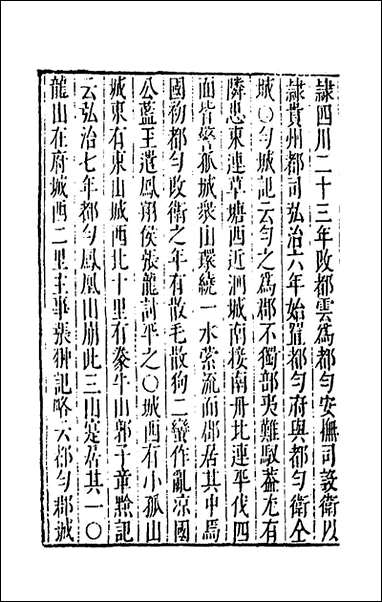 隸四川二十三年改都雲爲都勻安撫司設衛以
隸貴州都司弘治六年始置都勻府與都勻衛仝
城〇勻城記云勻之爲郡不獨部夷難馭葢尤有
隣患東連草塘西近泗城南接南丹北連平伐四
面皆蠻孤城衆山環繞一水縈流而郡居其中焉
國初都勻改衛之年有散毛散狗二蠻作亂凉國
公藍王遣鳳翔侯張龍討平之〇城西有小孤山
城東有東山城西北十里有拳牛山郭子章黔記
云弘治七年都勻鳳凰山崩此三山寔居其一〇
龍山在府城西二里主事張翀記略云都勻郡城